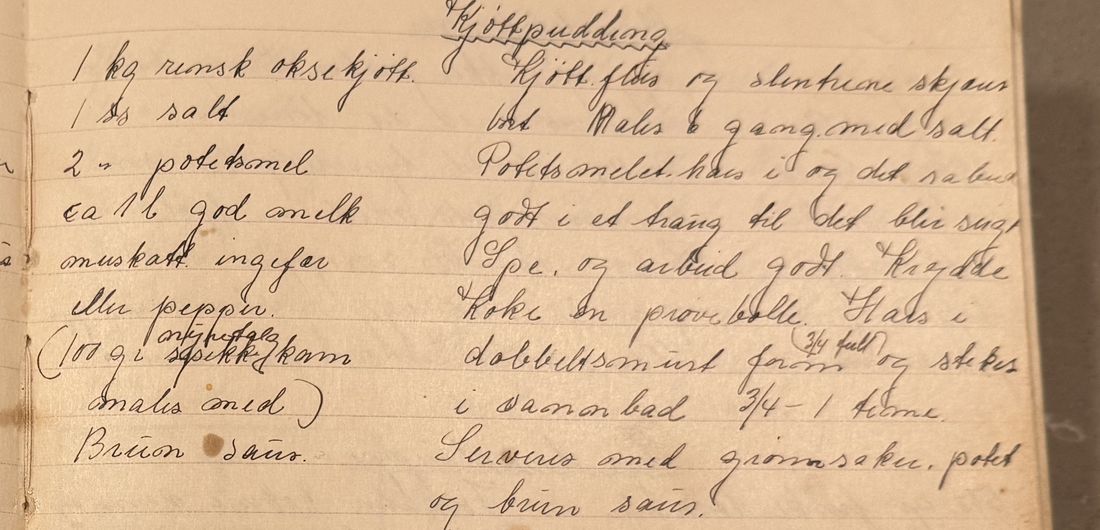 Kjøttpudding
1 kg rensk oksekjøtt.
1 ss salt
2 " potetsmel
ca 1 l god melk
muskatt ingefær
eller pepper.
nyretalg
(100 gr spekk) kam
males med)
Brun saus.
Kjøtt flus og slintrene skjæres
bort Males 6 gang. med salt.
Potetsmelet haes i og det
godt i et traug til det blir seigt
Spe. og arbeid godt. Krydde
Koke en prøvebolle. Haes i
(3/4 full)
dobbeltsmurt form og stekes
i vannbad 3/4 - 1 time.
Serveres med grønnsaker. potet
og brun saus.